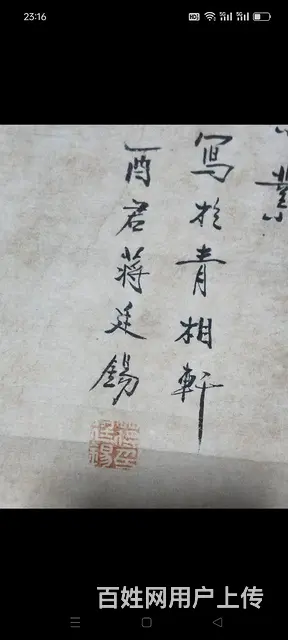 23:16
業
寫於青相軒
酉君蔣廷錫
蔣廷錫
百姓网用户上传